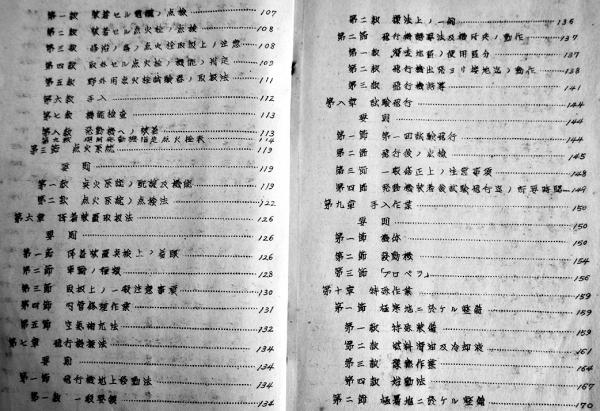 第一款 装着セル電纜ノ点検 107
第二款 装着セル点火栓ノ点検 108
第三款 点火栓取扱上ノ注意 108
第四款 取外セル点火栓ノ機能ノ判定 109
第五款 野外用点火栓試験器ノ取扱法 111
第六款 手入 112
第七款 機能検査 113
第八款 発動機ヘノ装着 113
114
第三節 点火系統 119
要則 119
第一款 点火系統ノ配線及機能 119
第二款 点火系統ノ点検法 122
第六章 降着装置取扱法 126
要則 126
第一節 降着装置点検上ノ着眼 126
第二節 車輪ノ種類 128
第三節 取扱上ノ一般注意事項 130
第四節 内管修理作業 131
第五節 空気補充法 132
第七章 飛行機操法 134
要則 134
第一節 飛行機地上移動法 134
第一款 一般要領 134
第二款 操法上ノ一例 136
第二節 飛行機誘導法及機付夫ノ動作 137
第一款 滑走地区ノ使用区分 137
第二款 飛行機出発ヨリ接地迄ノ動作 138
第三款 飛行機誘導 141
第八章 試験飛行 144
要則 144
第一節 第一回試験飛行 144
第二節 飛行後ノ点検 145
第三節 一般修正上ノ注意事項 148
第四節 発動機装着後試験飛行迄ノ所要時間 149
第九章 手入作業 150
要則 150
第一節 機体 150
第二節 発動機 154
第三節 「プロペラ」 156
第十章 特殊作業 159
第一節 極寒地ニ於ケル整備 159
第一款 特殊装備 159
第二款 燃料滑油及冷却液 161
第三款 保温作業 164
第四款 始動法 167
第二節 極暑地ニ於ケル整備 170